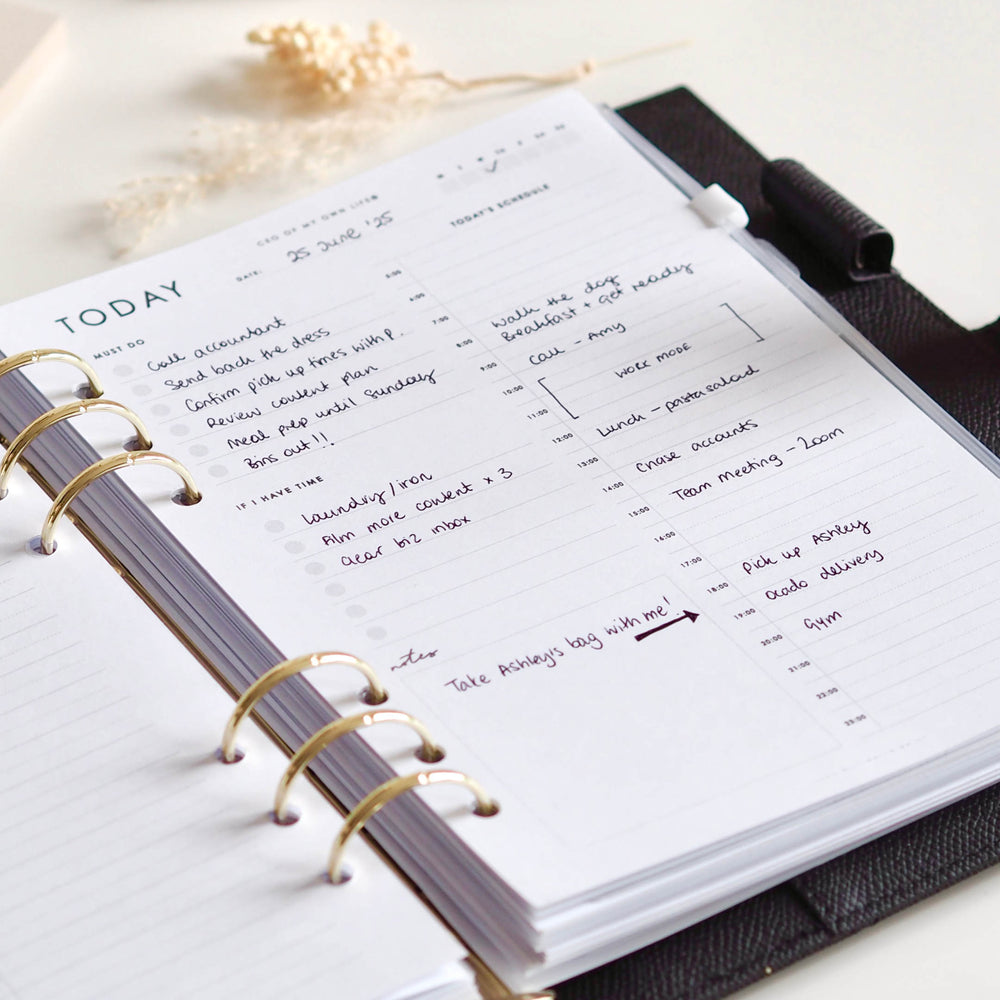 CEO OF MY OWN LIFE®
TODAY
DATE: 25 June '25
MUST DO
Call accountant
Send back the dress
Confirm pick up times with P.
Review content plan
Meal prep until Sunday
Bins out!!
IF I HAVE TIME
Laundry/iron
Film more content x 3
Clear biz inbox
notes
Take Ashley's bag with me!
TODAY'S SCHEDULE
5:00
6:00
7:00
8:00
9:00
10:00
11:00
12:00
13:00
14:00
15:00
16:00
17:00
18:00
19:00
20:00
21:00
22:00
23:00
Walk the dog
Breakfast + get ready
Call - Amy
WORK MODE
Lunch - pasta salad
Chase accounts
Team meeting - Zoom
Pick up Ashley
Ocado delivery
Gym